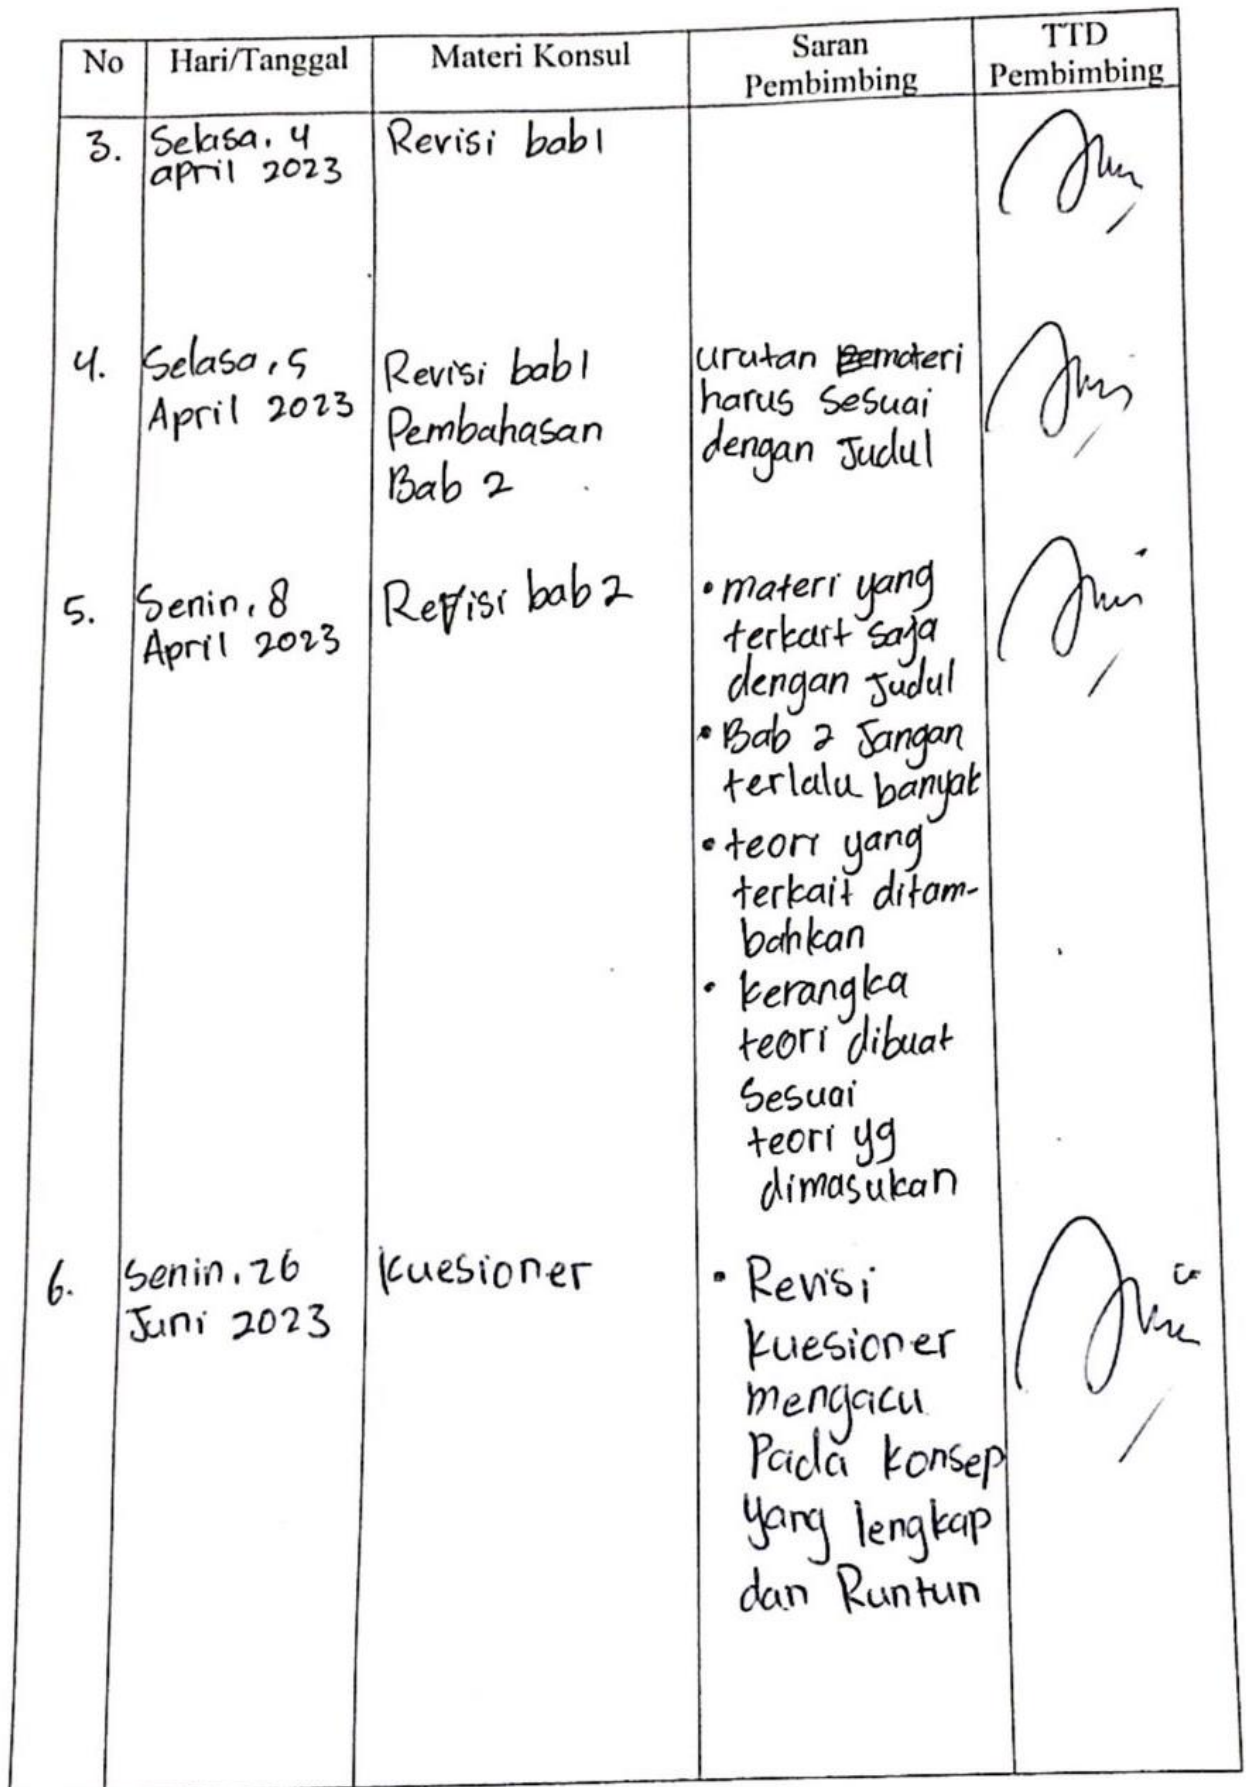 No Hari/Tanggal Materi Konsul Saran Pembimbing TTD Pembimbing
3. Selasa, 4 april 2023
Revisi bab 1
4. Selasa, 5
April 2023
Revisi bab 1
Pembahasan
Bab 2
urutan materi
harus Sesuai
dengan Judul
5. Senin, 8
April 2023
Revisi bab 2
• materi yang
terkait saja
dengan Judul
• Bab 2 Jangan
terlalu banyak
• teori yang
terkait ditam-
bahkan
• kerangka
teori dibuat
Sesuai
teori yg
dimasukan
6. Senin, 26
Juni 2023
kuesioner
• Revisi
kuesioner
mengacu
Pada konsep
yang lengkap
dan Runtun